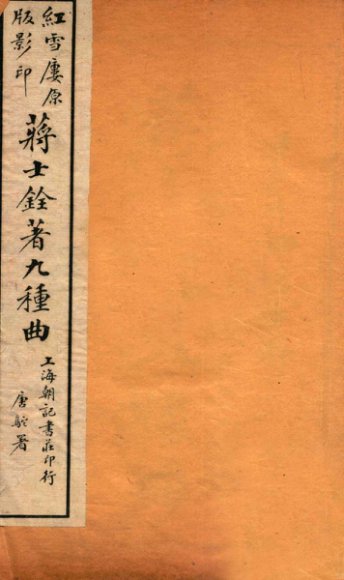 紅雪廔原
版影印
蔣士銓著九種曲
上海朝記書莊印行
唐駝署